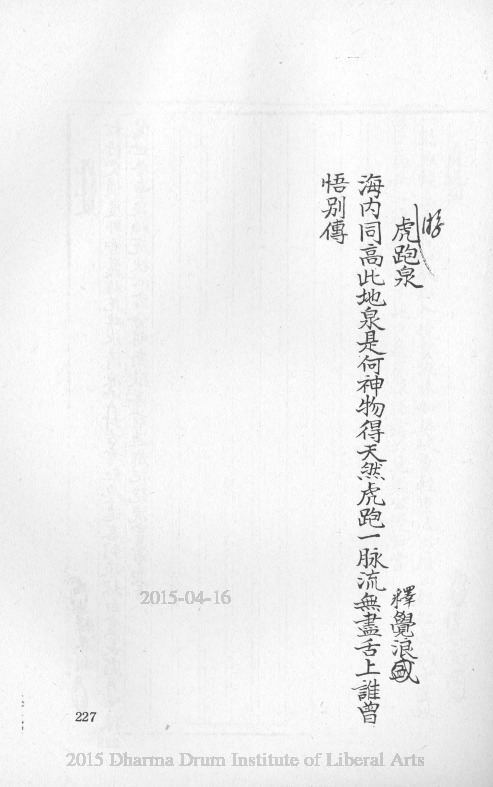 游
虎跑泉
釋覺浪盛
海内同高此地泉是何神物得天然虎跑一脉流無盡舌上誰曽
悟別傳
2015-04-16
227
2015 Dharma Drum Institute of Liberal Arts